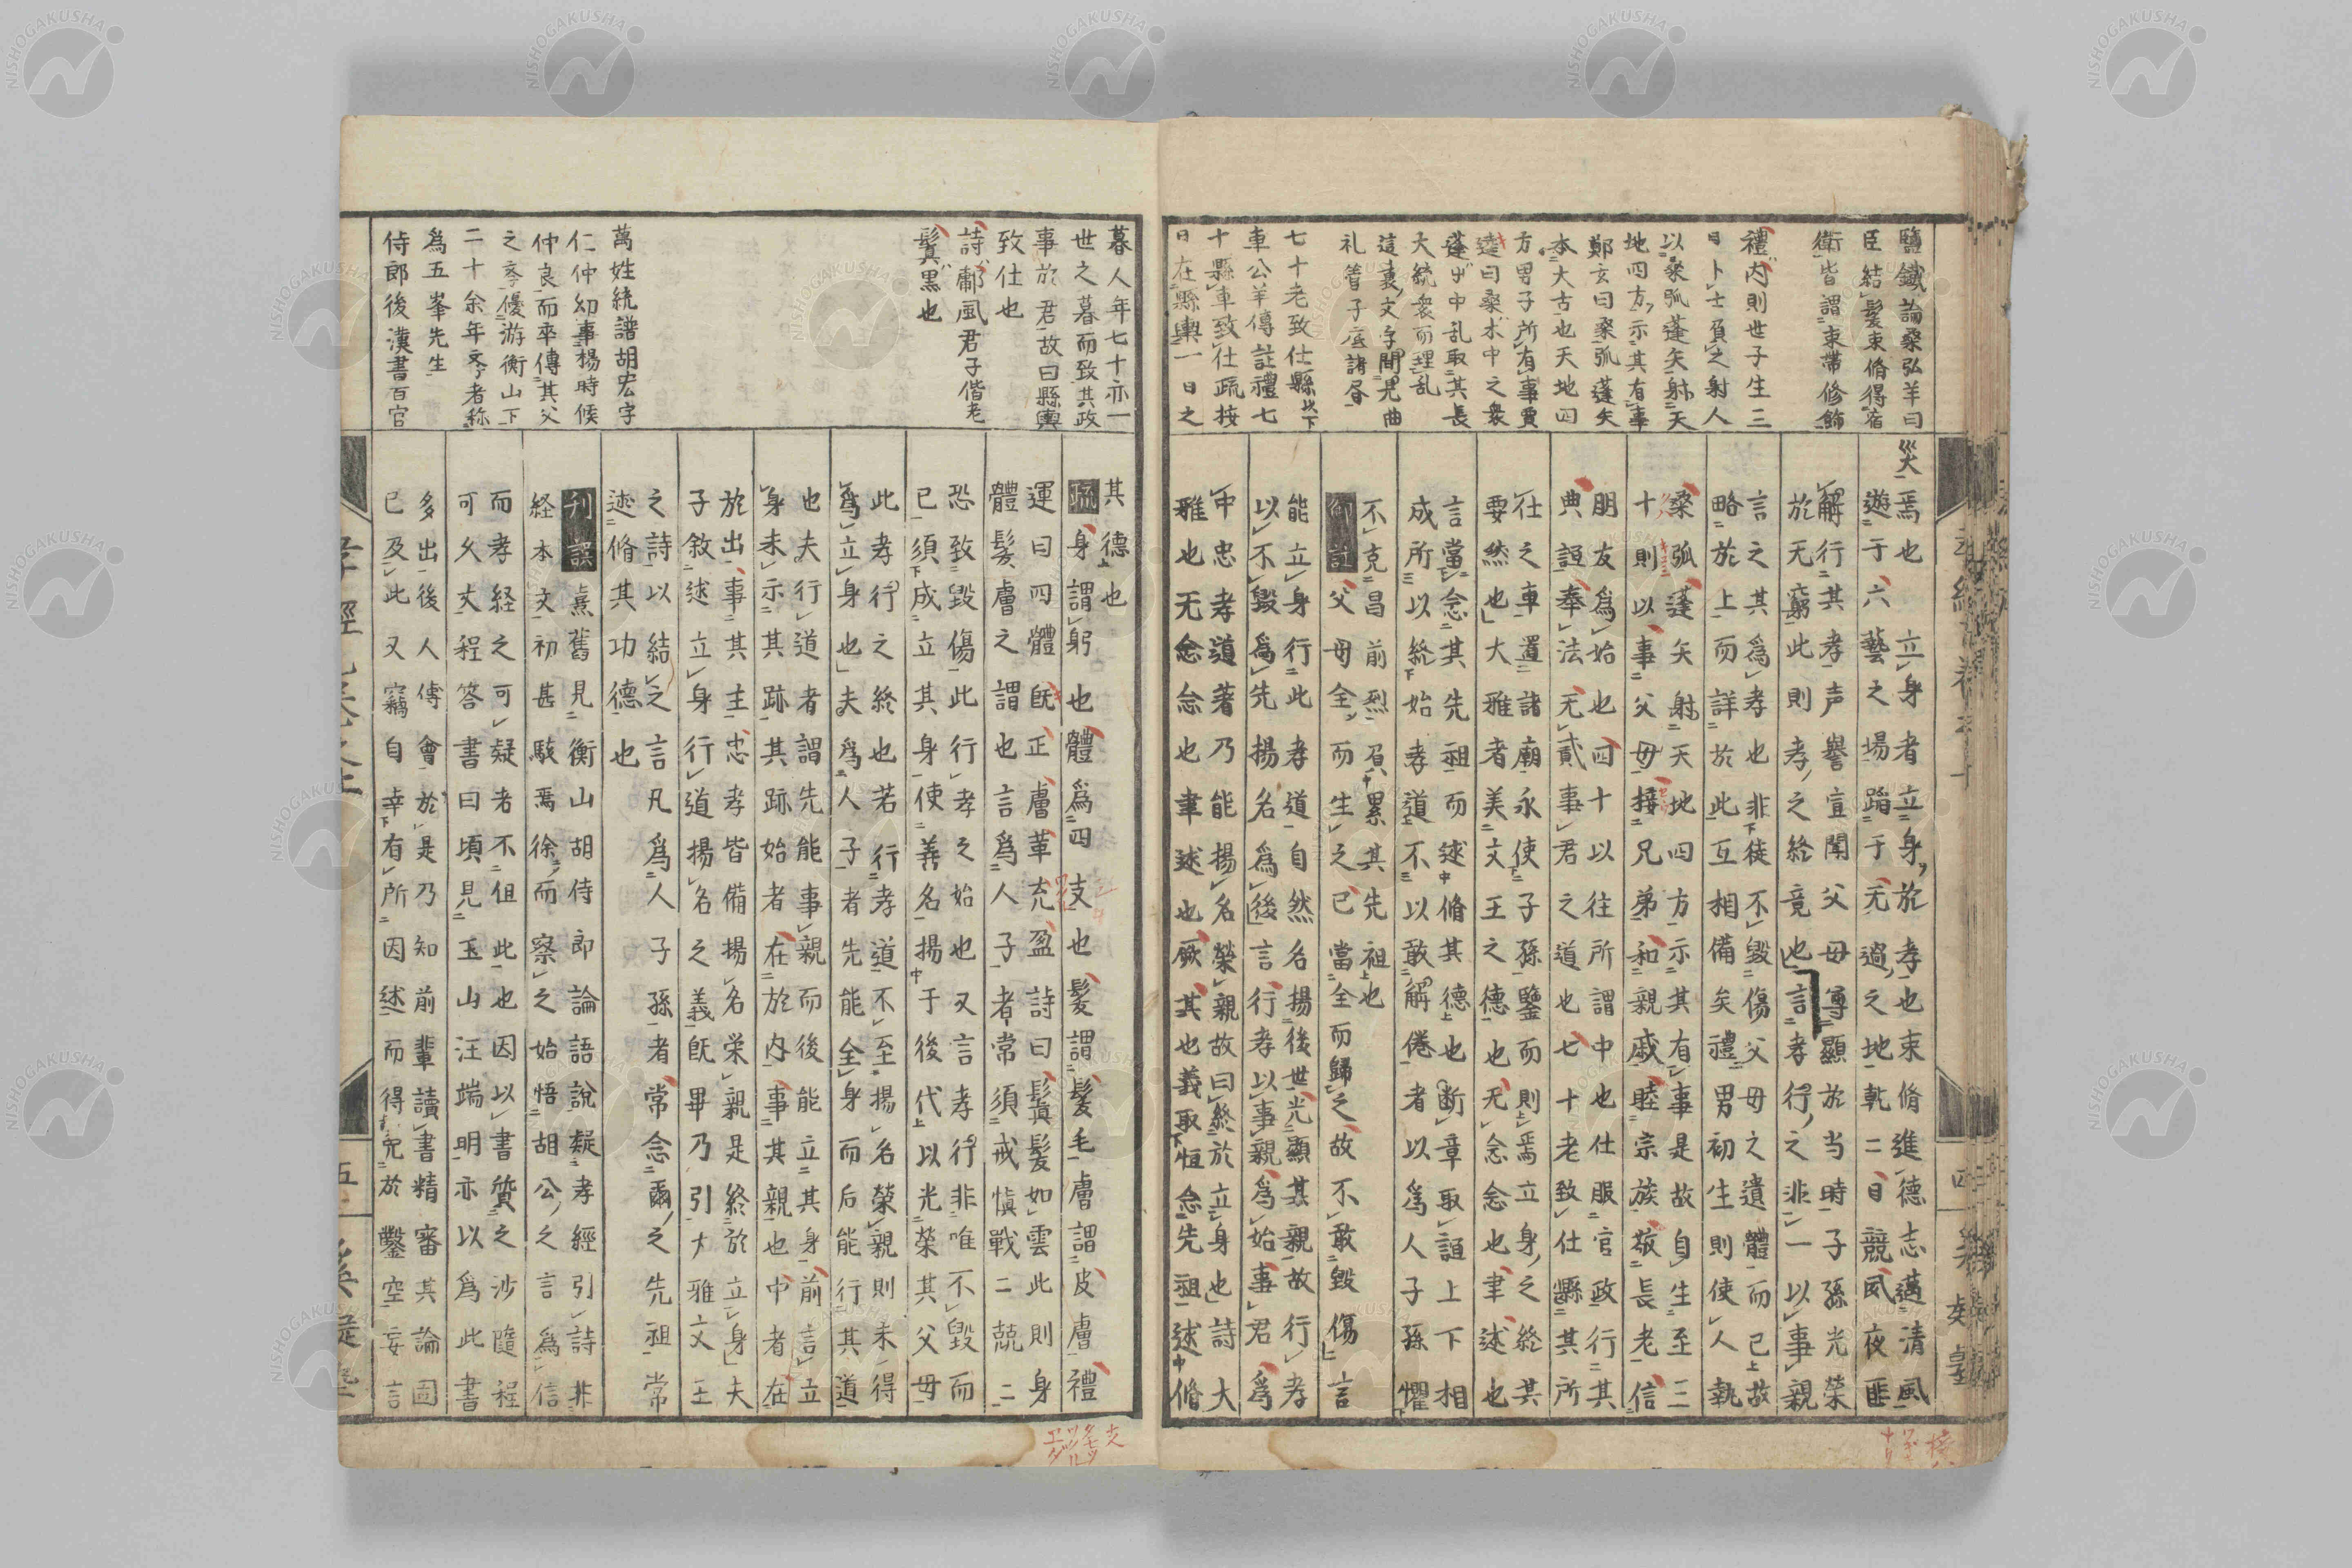 鹽鐵論桑弘羊曰
臣結髮束脩得宿
衛皆謂束帶修飾
禮内則世子生三
日卜士負之射人
以桑弧蓬矢射天
地四方示其有事
鄭玄曰桑弧蓬矢
本大古也天地四
方男子所有事賈
逵曰桑木中之衆
蓬屮中乱取其長
大統衆而理乱
這裏文字間見曲
礼管子底諸昏
七十老致仕縣以下
車公羊傳註禮七
十縣車致仕疏按
日在縣輿一日之
災焉也　立身者立身於孝也束脩進德志邁清風
遊于六藝之場蹈于无過之地乾二日競夙夜匪
解行其孝声譽宣聞父母尊顯於当時子孫光榮
於无窮此則孝之終竟也言孝行之非一以事親
言之其為孝也非徒不毀傷父母之遺體而已故
略於上而詳於此互相備矣禮男初生則使人執
桑弧蓬矢射天地四方示其有事是故自生至三
十則以事父母接兄弟和親戚睦宗族敬長老信
朋友為始也四十以往所謂中也仕服官政行其
典誼奉法无貳事君之道也七十老致仕縣其所
仕之車置諸廟永使子孫鑒而則焉立身之終其
要然也大雅者美文王之德也无念念也聿述也
言當念其先祖而述脩其德也断章取誼上下相
成所以終始孝道不以敢解倦者以為人子孫懼
不克昌前烈負累其先祖也
御註父母全而生之己當全而歸之故不敢毀傷言
能立身行此孝道自然名揚後世光顯其親故行孝
以不毀為先揚名為後言行孝以事親為始事君為
中忠孝道著乃能揚名榮親故曰終於立身也詩大
雅也无念念也聿述也厥其也義取恒念先祖述脩
暮人年七十亦一
世之暮而致其政
事於君故曰縣輿
致仕也
詩鄘風君子偕老
鬒黒也
萬姓統譜胡宏字
仁仲幼事楊時候
仲良而卒傳其父
之學優游衡山下
二十余年學者称
為五峯先生
侍郎後漢書百官
其德也
疏身謂躬也體為四支也髮謂髮毛膚謂皮膚禮
運曰四體既正膚革充盈詩曰鬒髮如雲此則身
體髮膚之謂也言為人子者常須戒慎戰二兢二
恐致毀傷此行孝之始也又言孝行非唯不毀而
已須成立其身使善名揚于後代以光榮其父母
此孝行之終也若行孝道不至揚名榮親則未得
為立身也夫為人子者先能全身而后能行其道
也夫行道者謂先能事親而後能立其身前言立
身未示其跡其跡始者在於内事其親也中者在
於出事其主忠孝皆備揚名栄親是終於立身夫
子敘述立身行道揚名之義既畢乃引大雅文王
之詩以結之言凡為人子孫者常念爾之先祖常
述脩其功德也
刊誤熹舊見衡山胡侍郎論語說疑孝經引詩非
経本文初甚駭焉徐而察之始悟胡公之言為信
而孝経之可疑者不但此也因以書質之沙隨程
可久丈程答書曰頃見玉山汪端明亦以為此書
多出後人傅會於是乃知前輩讀書精審其論固
已及此又竊自幸有所因述而得免於鑿空妄言